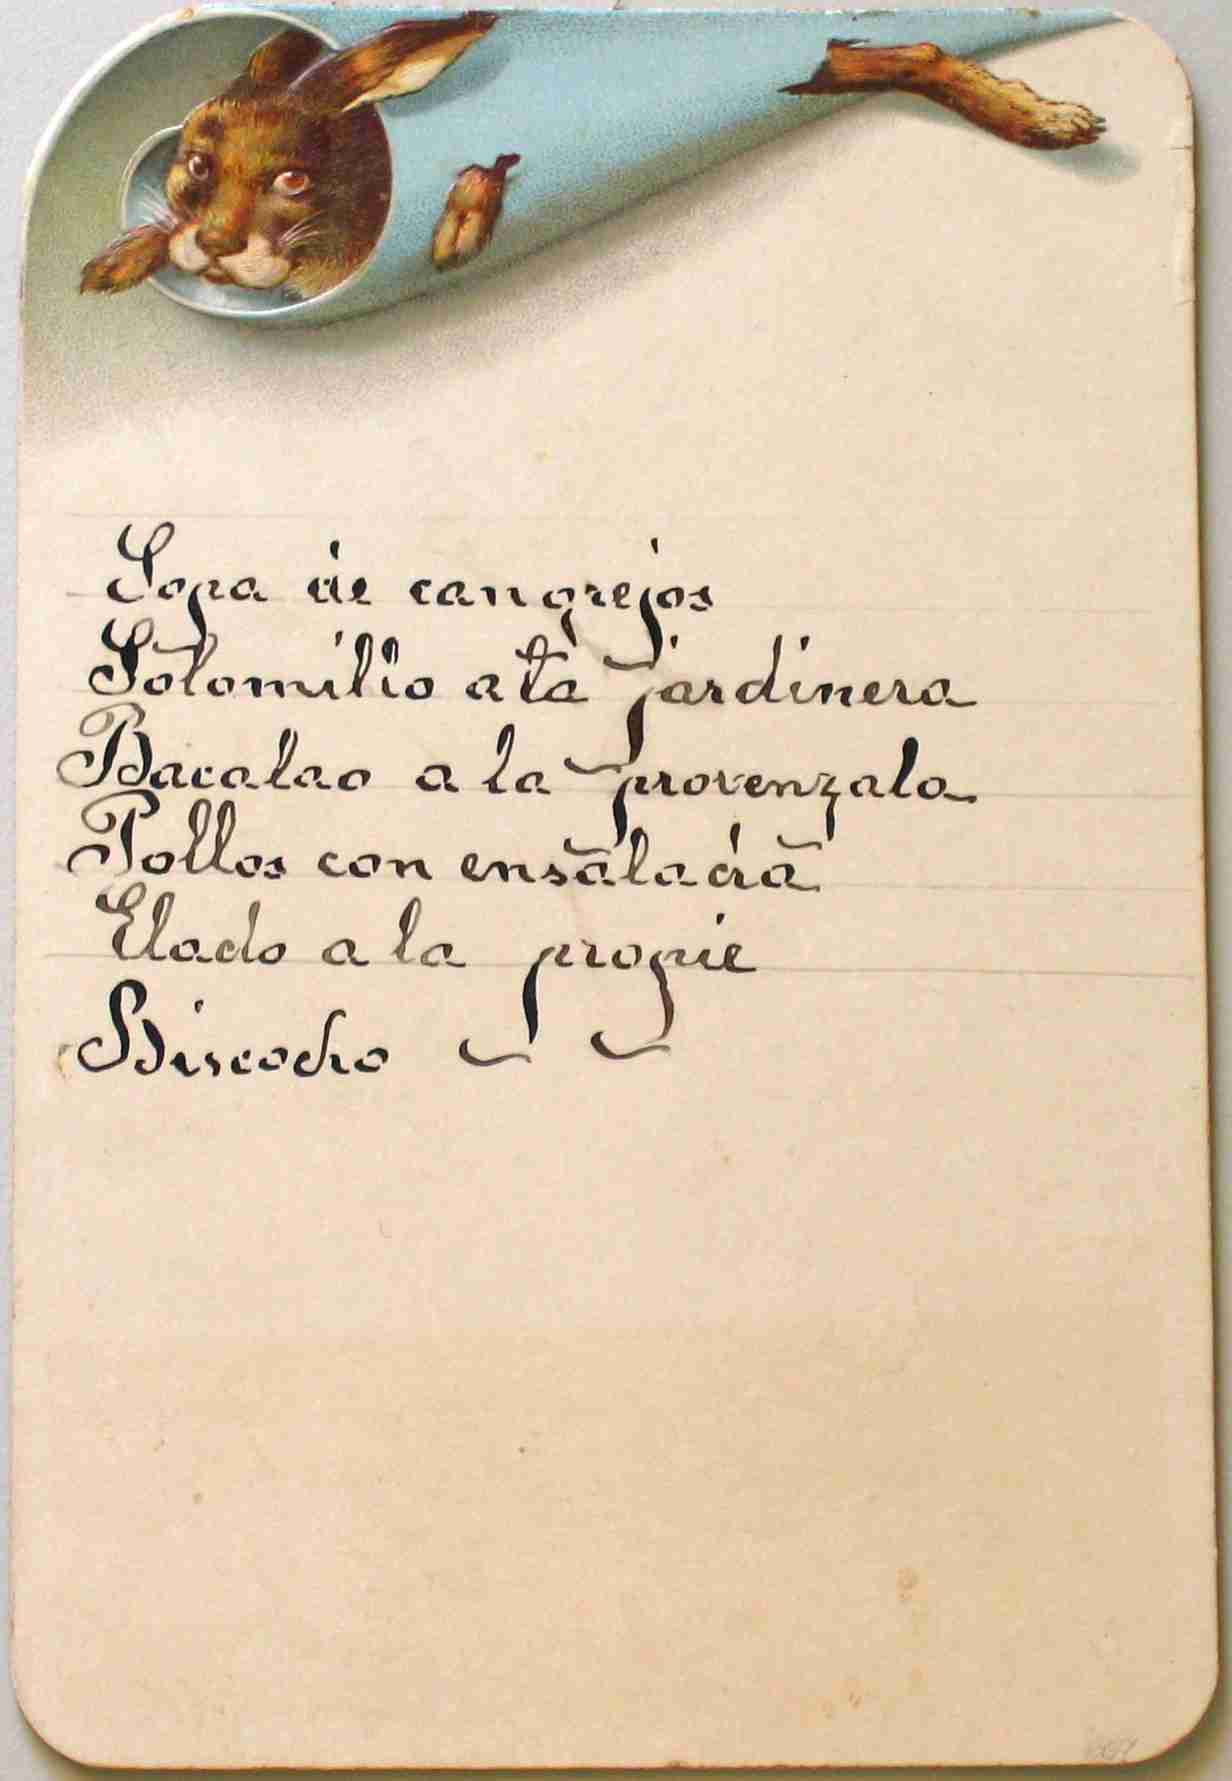 Sopa de cangrejos
Solomillo a la jardinera
Bacalao a la provenzala
Pollos con ensalada
Elado a la propie
Biscocho